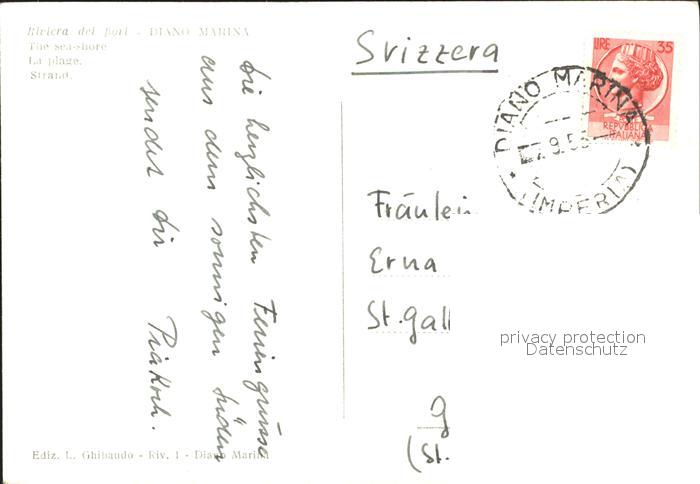 Riviera dei fiori - DIANO MARINA
The sea-shore
La plage.
Strand.
Die herzlichsten Feriengrüsse
aus dem sonnigen Süden
sendet dir
Pia Koch.
Ediz. L. Ghibaudo - Riv. 1 - Diano Marina
Svizzera
LIRE 35
REPVBBLICA
ITALIANA
DIANO MARINA
(IMPERIA)
Fräulein
Erna
St. Gall
g
(St.
privacy protection
Datenschutz